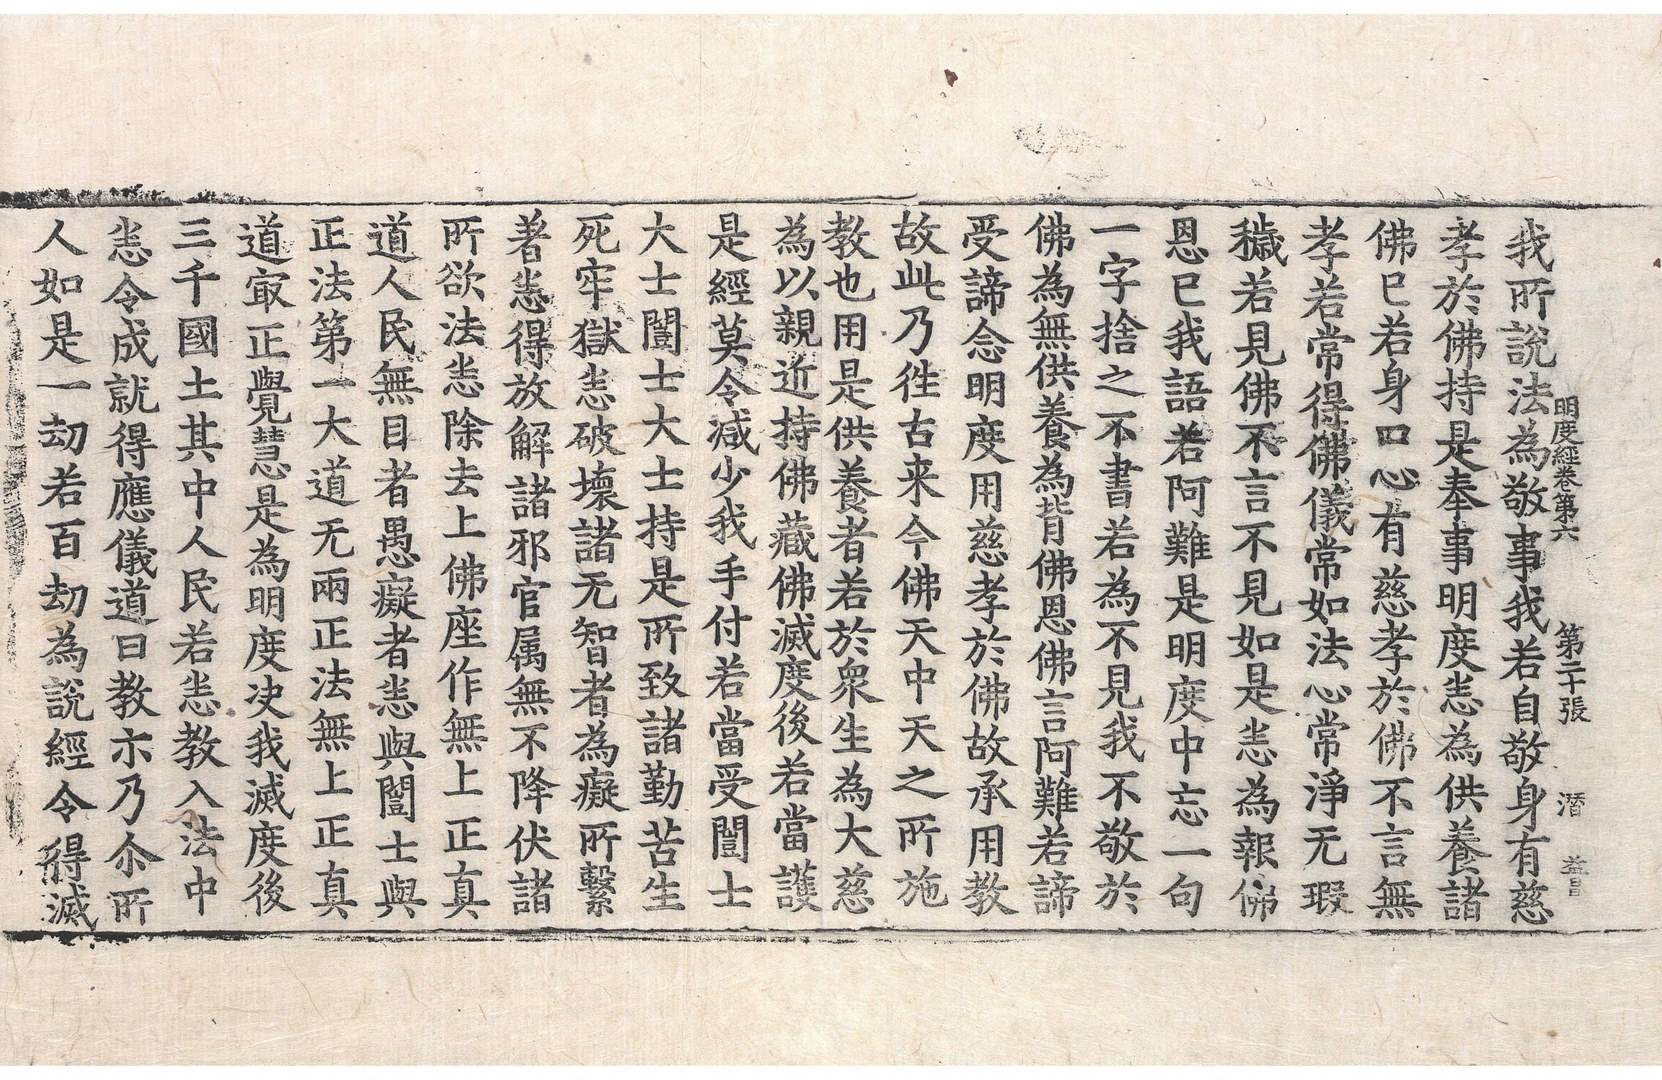 明度經卷第六 第二十張 潛 益昌
我所說法為敬事我若自敬身有慈
孝於佛持是奉事明度恙為供養諸
佛已若身口心有慈孝於佛不言無
孝若常得佛儀常如法心常淨无瑕
穢若見佛不言不見如是恙為報佛
恩已我語若阿難是明度中忘一句
一字捨之不書若為不見我不敬於
佛為無供養為背佛恩佛言阿難若諦
受諦念明度用慈孝於佛故承用教
故此乃徃古来今佛天中天之所施
教也用是供養者若於衆生為大慈
為以親近持佛藏佛滅度後若當護
是經莫令減少我手付若當受闓士
大士闓士大士持是所致諸勤苦生
死牢獄恙破壞諸无智者為癡所繫
著恙得放解諸邪官属無不降伏諸
所欲法恙除去上佛座作無上正真
道人民無目者愚癡者恙與闓士與
正法第一大道无兩正法無上正真
道㝡正覺慧是為明度决我滅度後
三千國土其中人民若恙教入法中
恙令成就得應儀道日教亦乃尒所
人如是一劫若百劫為說經令得滅